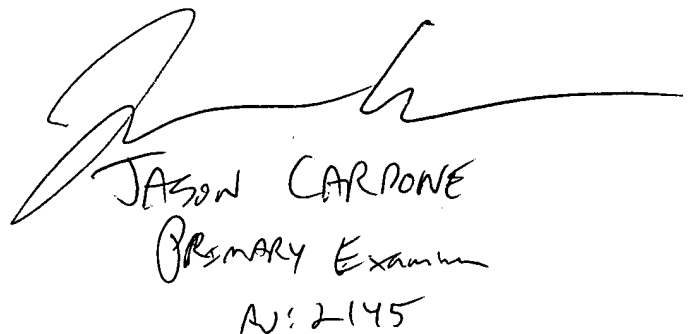 JASON CARDONE
PRIMARY Examiner
AU: 2145